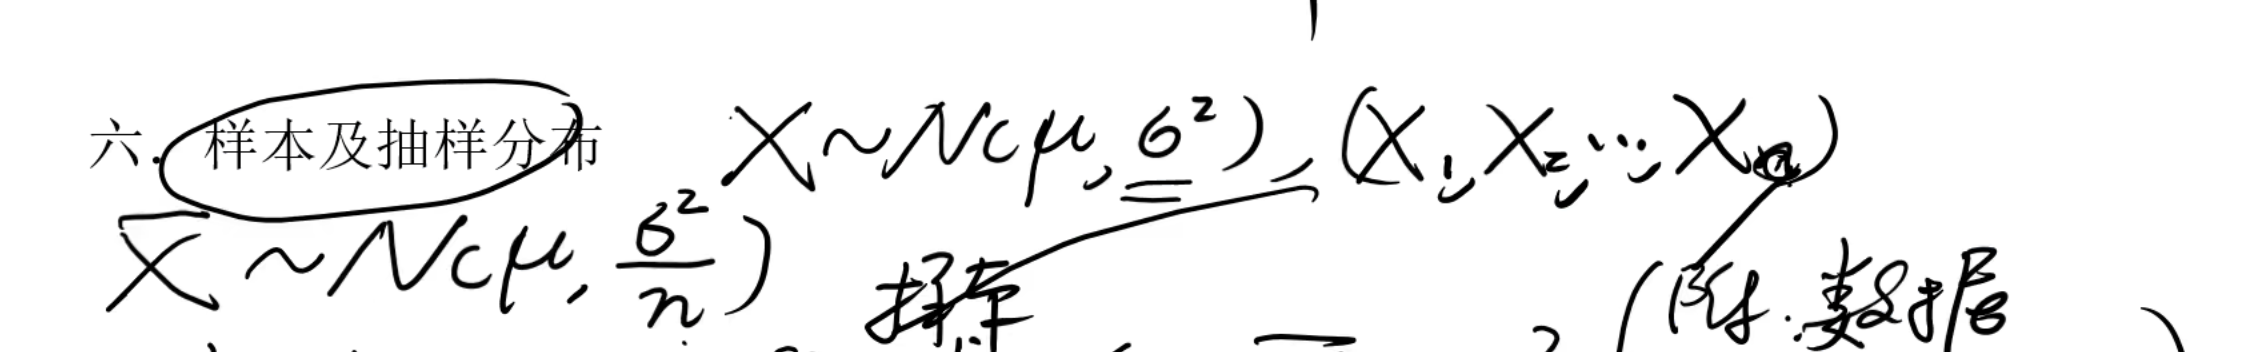 六. 样本及抽样分布 X~N(μ,σ²), (X₁,X₂,…,Xₙ)
X̄~N(μ,σ²/n) (附.数据